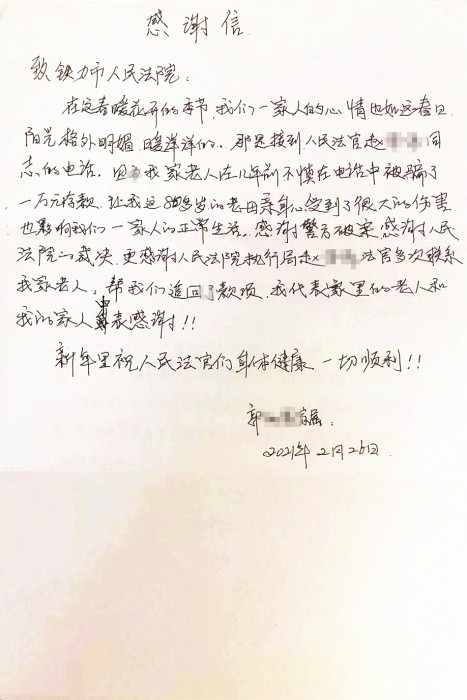 感谢信
致铁力市人民法院：
在这春暖花开的季节，我们一家人的心情也如这春日
阳光格外明媚，暖洋洋的..那是接到人民法官赵同
志的电话。因我家老人在几年前不慎在电话中被骗了
一万元存款，让我这岁的老母亲身心受到了很大的伤害
也影响我们一家人的正常生活。感谢警方破案，感谢人民
法院的裁决，更感谢人民法院执行局赵法官多次联系
我家老人，帮我们追回了款项，我代表家里的老人和
我的家人表感谢！！
新年里祝人民法官们身体健康，一切顺利！！
郭家属：
2021年2月26日.